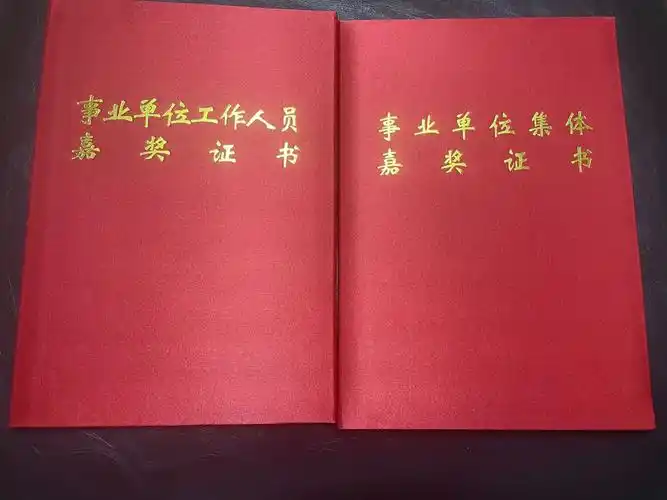 事业单位工作人员
嘉奖证书
事业单位集体
嘉奖证书